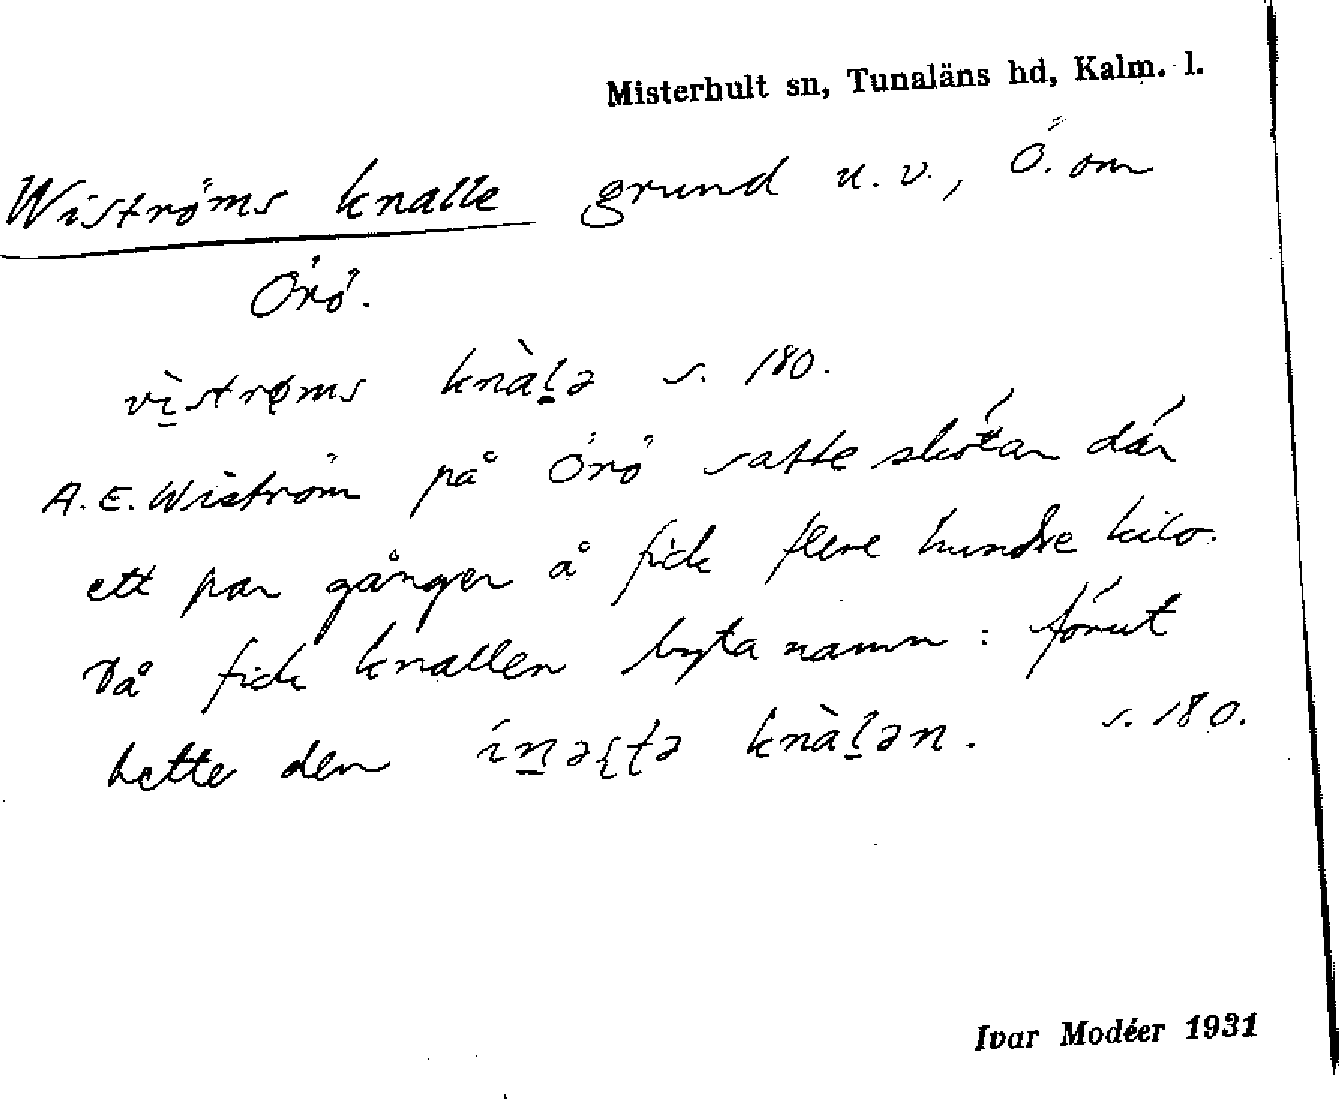 Misterhult sn, Tunaläns hd, Kalm. l.
Wiströms knalle grund u. v., Ö. om
Örö.
vì̱strøms knàḻə s. 180.
A. E. Wiström på Örö satte skötar där
ett par gånger å fick flere hundre kilo.
Då fick knallen byta namn : förut
hette den knàḻən. s. 180.
Ivar Modéer 1931